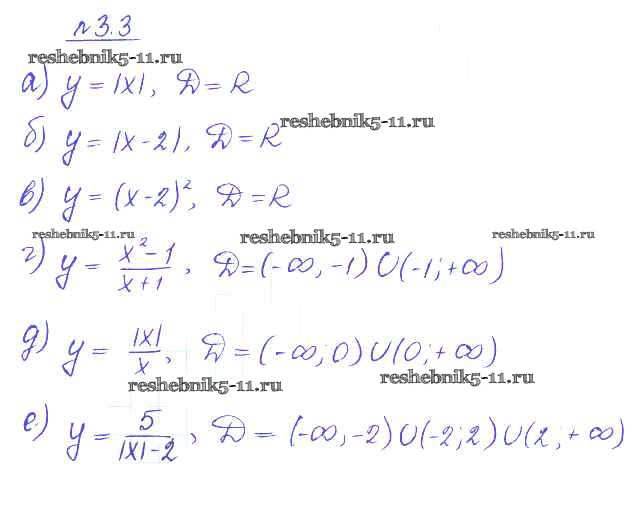 №3.3
reshebnik5-11.ru
а) y = |x|, D = R
reshebnik5-11.ru
б) y = |x-2|, D = R
в) y = (x-2)², D = R
reshebnik5-11.ru reshebnik5-11.ru reshebnik5-11.ru
г) y = (x²-1)/(x+1), D = (-∞, -1) ∪ (-1; +∞)
д) y = |x|/x, D = (-∞; 0) ∪ (0; +∞)
reshebnik5-11.ru reshebnik5-11.ru
е) y = 5/(|x|-2), D = (-∞, -2) ∪ (-2; 2) ∪ (2; +∞)